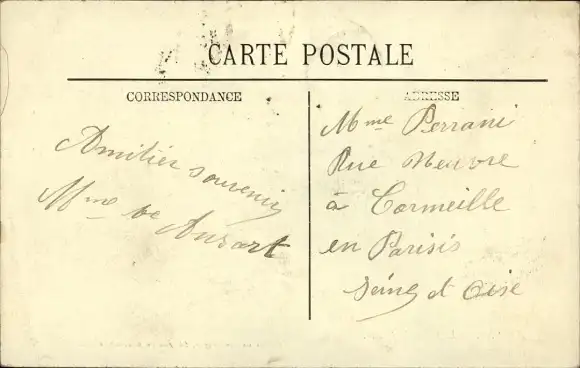 CARTE POSTALE
CORRESPONDANCE
ADRESSE
Amitiés souvenir
Mme Ve Ansart
Mme Perrani
Rue Neuvre
à Cormeille
en Parisis
Seine et Oise